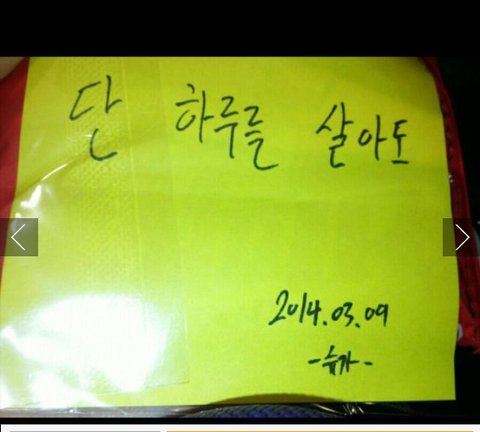 단 하루를 살아도
2014.03.09
-슈가-